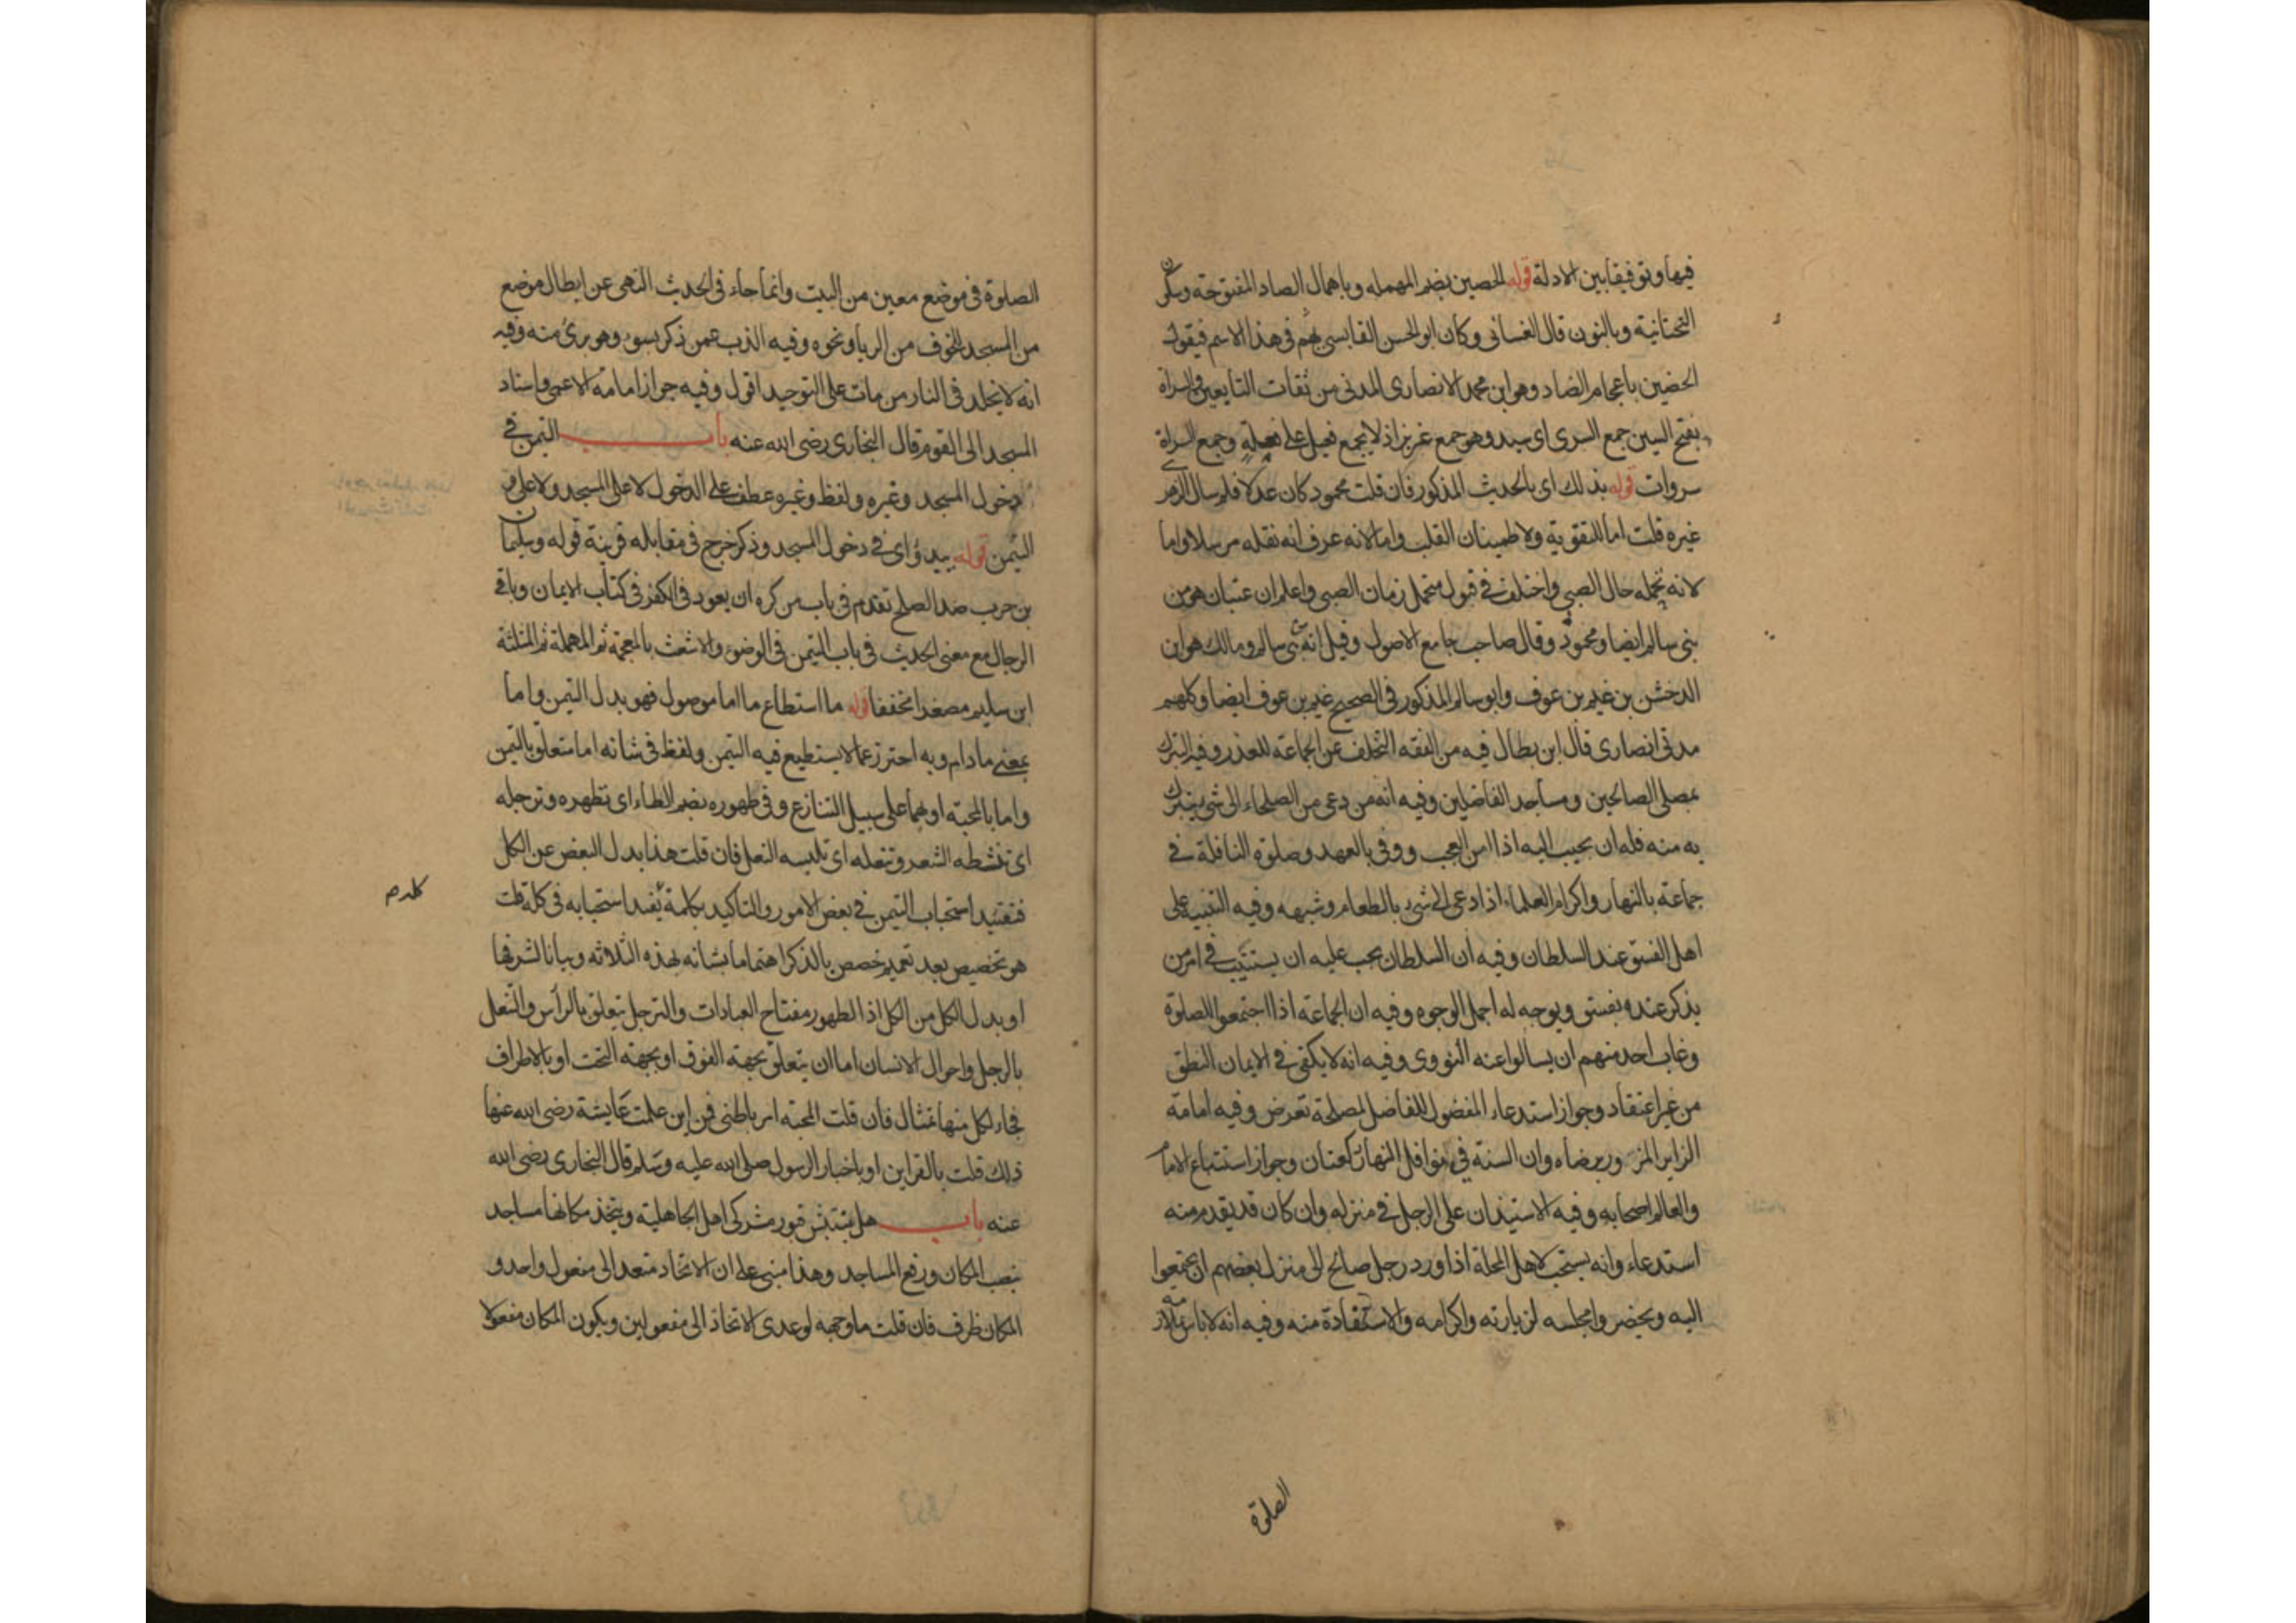 فيها وتوفيقا بين الادلة قوله الحصين بضم المهمله وباهمال الصاد المفتوحة وسكون
التحتانية وبالنون قال الغساني وكان ابو الحسن القابسي يهم في هذا الاسم فيقول
الحضين باعجام الضاد وهو ابن محمد الانصاري المدني من ثقات التابعين والسراة
بفتح السين جمع السري اي سيد وهو جمع عزيز اذ لا يجمع فعيل على فعلة وجمع السراة
سروات قوله بذلك اي بالحديث المذكور فان قلت محمود كان عدلا فلم سال الزهري
غيره قلت اما للتقوية ولاطمينان القلب واما لانه عرف انه نقله مرسلا واما
لانه تحمله حال الصبي واختلف في قبول متحمل زمان الصبي واعلم ان عتبان هو من
بني سالم ايضا ومحمود وقال صاحب جامع الاصول وقيل انه من بني سالم ومالك هو ابن
الدخشن بن غنم بن عوف وابو سالم المذكور في الصحيح غنم بن عوف ايضا وكلهم
مدني انصاري قال ابن بطال فيه من الفقه التخلف عن الجماعة للعذر وفيه التبرك
بمصلى الصالحين ومساجد الفاضلين وفيه انه من دعى من الصلحاء الى شئ يتبرك
به منه فله ان يجيب اليه اذا امن العجب ووفى بالعهد وصلوة النافلة في
جماعة بالنهار واكرام العلماء اذا دعى الى شئ بالطعام وشبهه وفيه التنبيه على
اهل الفسق عند السلطان وفيه ان السلطان يجب عليه ان يستثبت في امر من
يذكر عنده بفسق ويوجه له اجمل الوجوه وفيه ان الجماعة اذا اجتمعوا للصلوة
وغاب احد منهم ان يسالوا عنه النووي وفيه انه لا يكفي في الايمان النطق
من غير اعتقاد وجواز استدعاء المفضول للفاضل لمصلحة تعرض وفيه امامة
الزاير المزور برضاه وان السنة في نوافل النهار ركعتان وجواز استتباع الامام
والعالم اصحابه وفيه الاستيذان على الرجل في منزله وان كان قد يقدم منه
استدعاء وانه يستحب لاهل المحلة اذا ورد رجل صالح الى منزل بعضهم ان يجتمعوا
اليه ويحضروا مجلسه لزيارته واكرامه والاستفادة منه وفيه انه لا باس بملازمة
الصلوة
الصلوة في موضع معين من البيت وانما جاء في الحديث النهى عن ايطال موضع
من المسجد للخوف من الريا ونحوه وفيه الذب عمن ذكر بسوء وهو برئ منه وفيه
انه لا يخلد في النار من مات على التوحيد اقول وفيه جواز امامة الاعمى واسناد
المسجد الى القوم قال البخاري رضي الله عنه باب التيمن في
دخول المسجد وغيره ولفظ وغيره عطف على الدخول لا على المسجد ولا على
التيمن قوله يبدؤ اي في دخول المسجد وذكر خرج في مقابله قرينة قوله وسليمان
بن حرب ضد الصلح تقدم في باب من كره ان يعود في الكفر في كتاب الايمان وباقي
الرجال مع معنى الحديث في باب التيمن في الوضوء والاشعث بالمعجمة ثم المهملة ثم المثلثة
ابن سليم مصغرا مخففا قوله ما استطاع ما اما موصول فهو بدل التيمن واما
بمعنى مادام وبه احترز عما لا يستطيع فيه التيمن ولفظ في شانه اما متعلق بالتيمن
واما بالمحبة او بهما على سبيل التنازع وفي طهوره بضم الطاء اى تطهره وترجله
اى تمشطه الشعر وتنعله اى تلبسه النعل فان قلت هذا بدل البعض عن الكل
فتقييد استحباب التيمن في بعض الامور والتاكيد بكلمة يفيد استحبابه في كله قلت
كله م
هو تخصيص بعد تعميم خصص بالذكر اهتماما بشانه لهذه الثلاثه وبيانا لشرفها
او بدل الكل من الكل اذ الطهور مفتاح العبادات والترجل يتعلق بالرأس والتنعل
بالرجل واحوال الانسان اما ان يتعلق بجهة الفوق او بجهة التحت او بالاطراف
فجاء لكل منها بمثال فان قلت المحبة امر باطني فمن اين علمت عايشة رضي الله عنها
ذلك قلت بالقراين او باخبار الرسول صلى الله عليه وسلم قال البخاري رضى الله
عنه باب هل ينبش قبور مشركي اهل الجاهلية ويتخذ مكانها مساجد
بنصب المكان ورفع المساجد وهذا مبني على ان الاتخاذ متعد الى مفعول واحد و
المكان ظرف فان قلت ما وجهه لو عدى الاتخاذ الى مفعولين ويكون المكان مفعولا